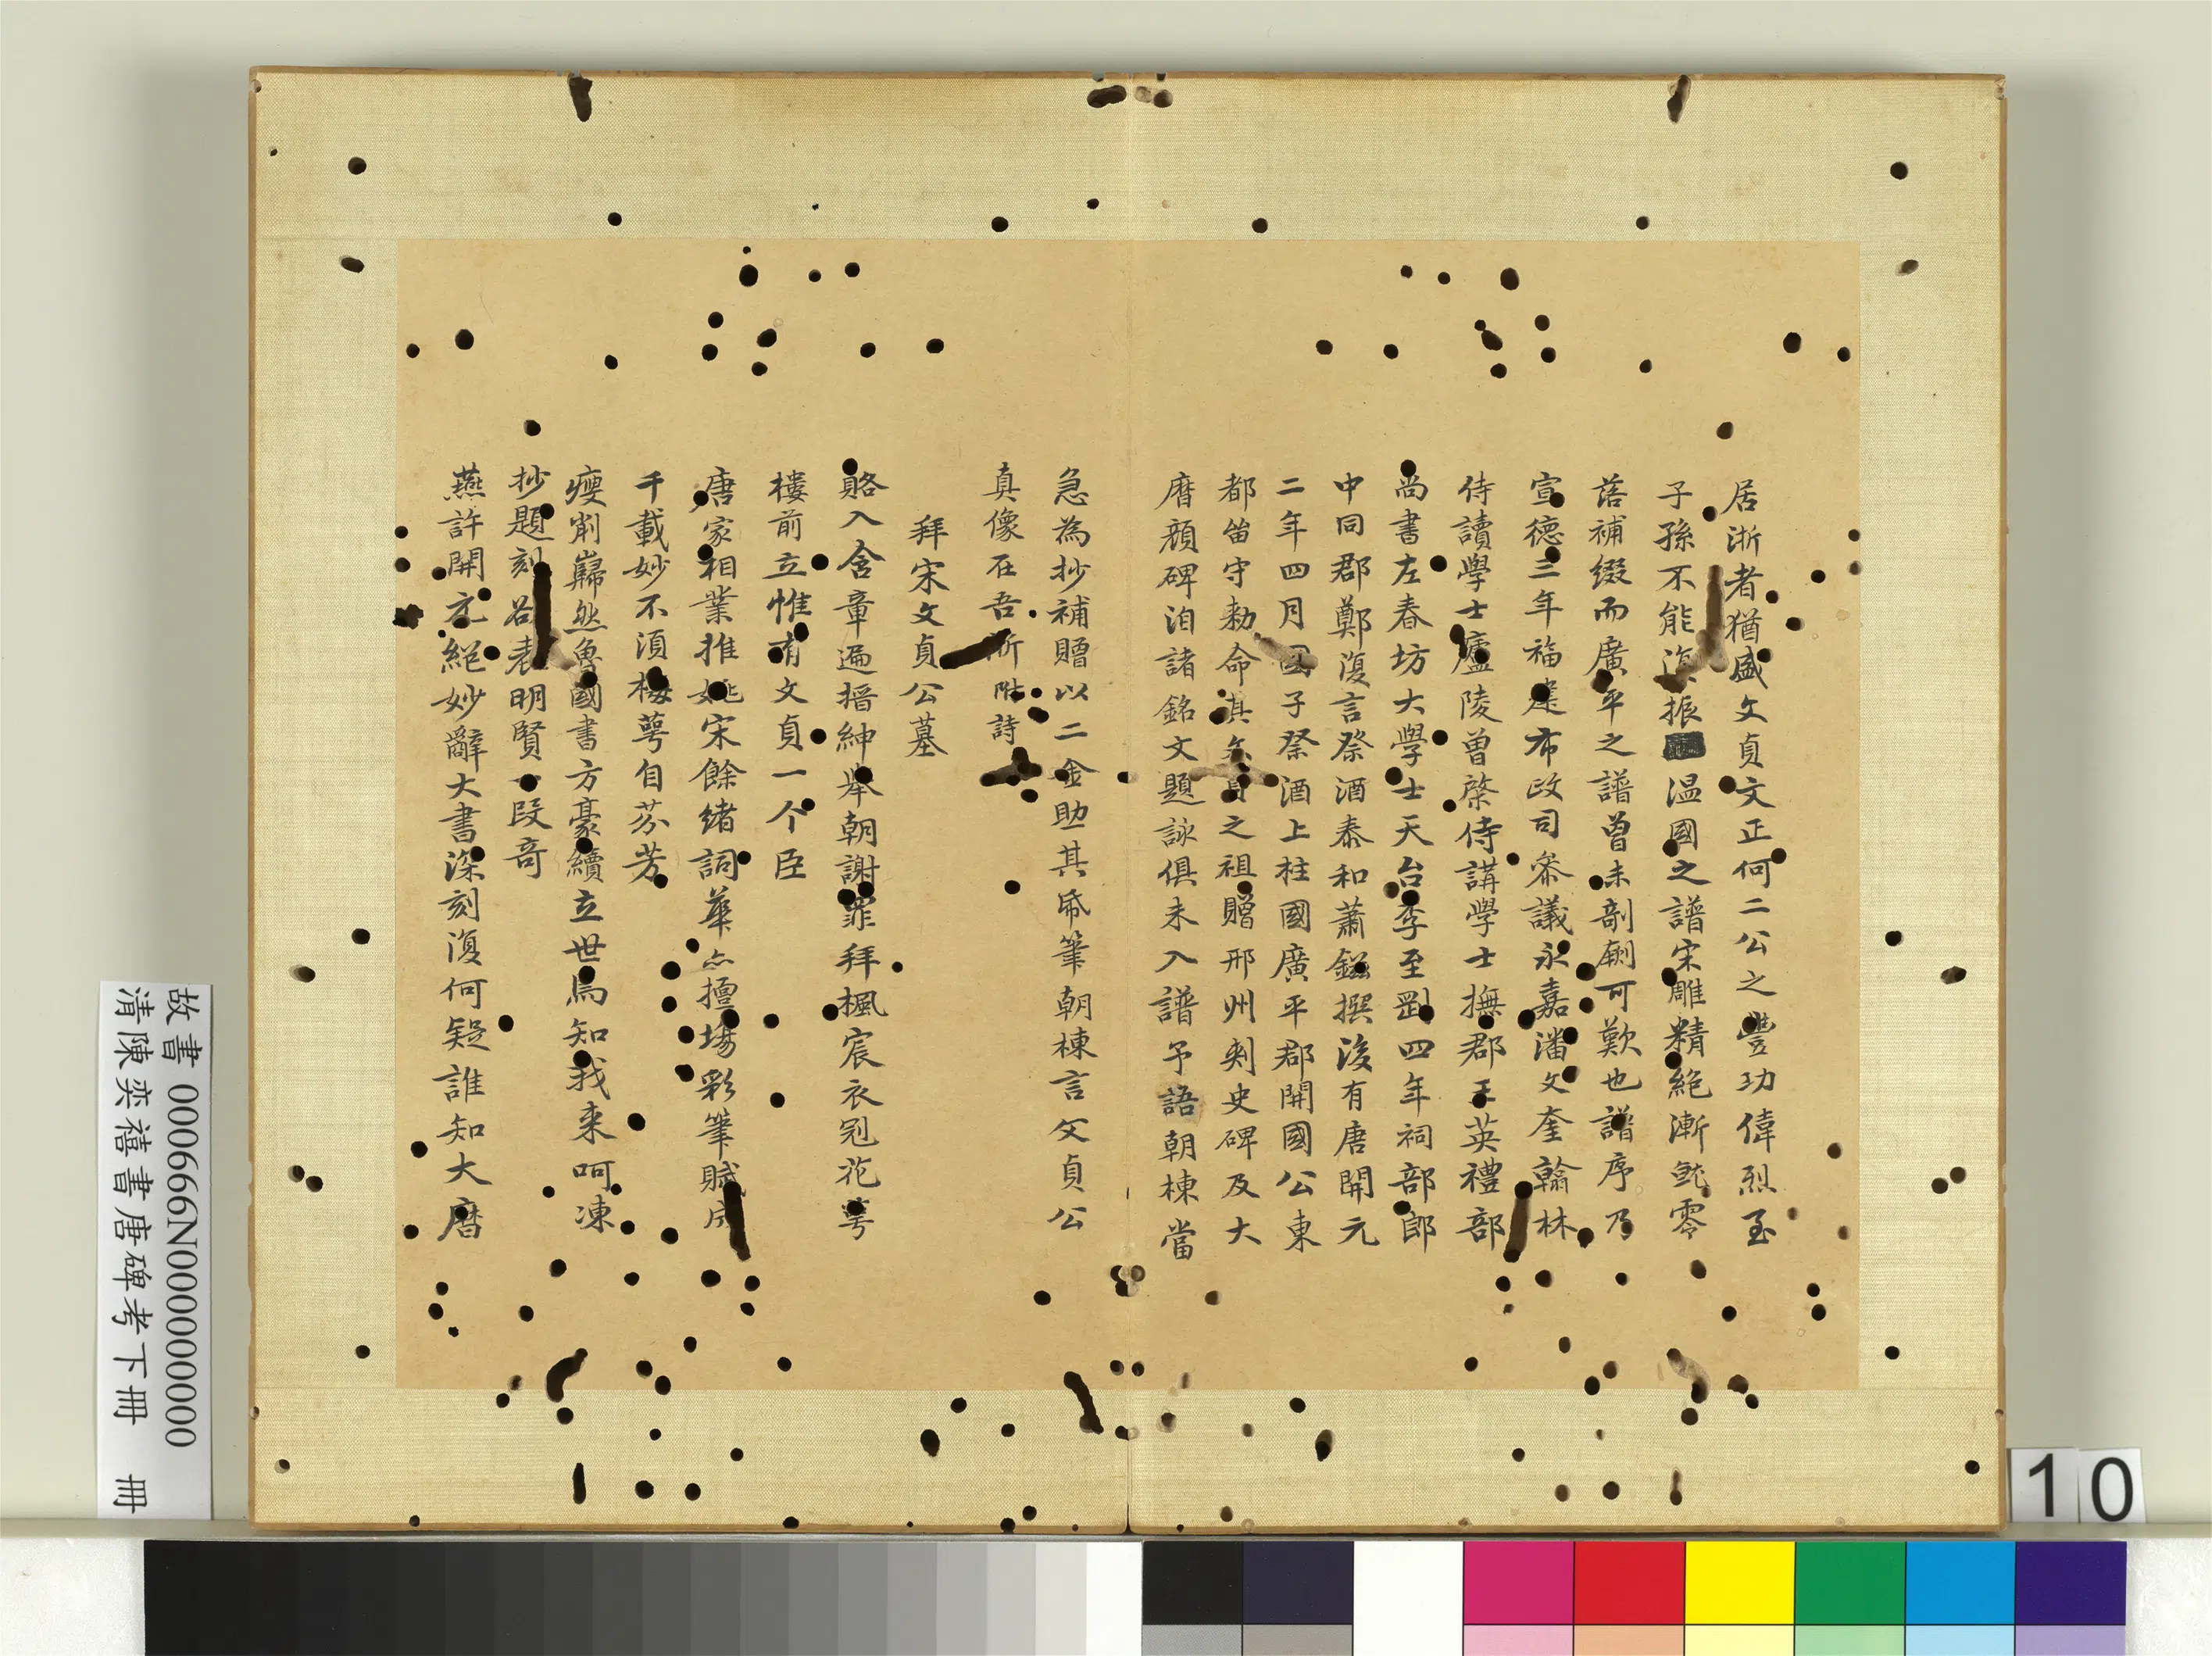 居浙者猶盛文貞文正何二公之豐功偉烈至
子孫不能復振溫國之譜宋雕精絕漸就零
落補綴而廣平之譜曾未剞劂可歎也譜序乃
宣德三年福建布政司參議永嘉潘文奎翰林
侍讀學士廬陵曾棨侍講學士撫郡王英禮部
尚書左春坊大學士天台李至剛四年祠部郎
中同郡鄭復言祭酒泰和蕭鎡撰後有唐開元
二年四月國子祭酒上柱國廣平郡開國公東
都笛守勑命其文貞之祖贈邢州刺史碑及大
曆顏碑洎諸銘文題詠俱未入譜予語朝棟當
急為抄補贈以二金助其帋筆朝棟言文貞公
真像在吾浙附詩
拜宋文貞公墓
賂入含章遍搢紳舉朝謝罪拜楓宸衣冠花萼
樓前立惟有文貞一个臣
唐家相業推姚宋餘緒詞華亦擅場彩筆賦成
千載妙不須梅萼自芬芳
瘦削巋然魯國書方豪續立世焉知我来呵凍
抄題刻表明賢一段奇
燕許開元絕妙辭大書深刻復何疑誰知大曆
故書 000666N000000000
清陳奕禧書唐碑考下冊 冊
10